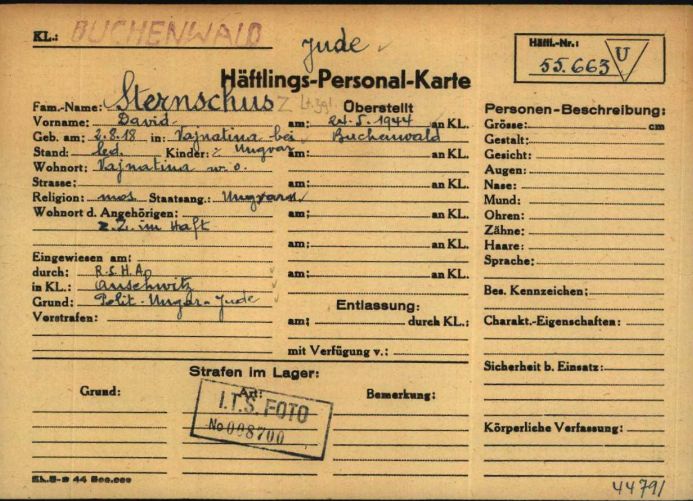 KL.: BUCHENWALD
Jude
Häftl.-Nr.:
55.663 U
Häftlings-Personal-Karte
Fam.-Name: Sternschus z Lt. Zgl.
Vorname: David
Geb. am: 2.8.18 in: Vajnatina bei
Ungvar
Stand: led. Kinder: %
Wohnort: Vajnatina w. o.
Strasse:
Religion: mos Staatsang.: Ungarn
Wohnort d. Angehörigen:
z. Z. im Haft
Eingewiesen am:
durch: R.S.H.A.
in KL.: Auschwitz
Grund: Polit-Ungar-Jude
Vorstrafen:
Überstellt
am: 24.5.1944 an KL.
Buchenwald
am: an KL.
am: an KL.
am: an KL.
am: an KL.
am: an KL.
Entlassung:
am: durch KL.:
mit Verfügung v.:
Personen-Beschreibung:
Grösse: cm
Gestalt:
Gesicht:
Augen:
Nase:
Mund:
Ohren:
Zähne:
Haare:
Sprache:
Bes. Kennzeichen:
Charakt.-Eigenschaften:
Sicherheit b. Einsatz:
Körperliche Verfassung:
Strafen im Lager:
Grund: Art: Bemerkung:
I.T.S. FOTO
No 008700
44791